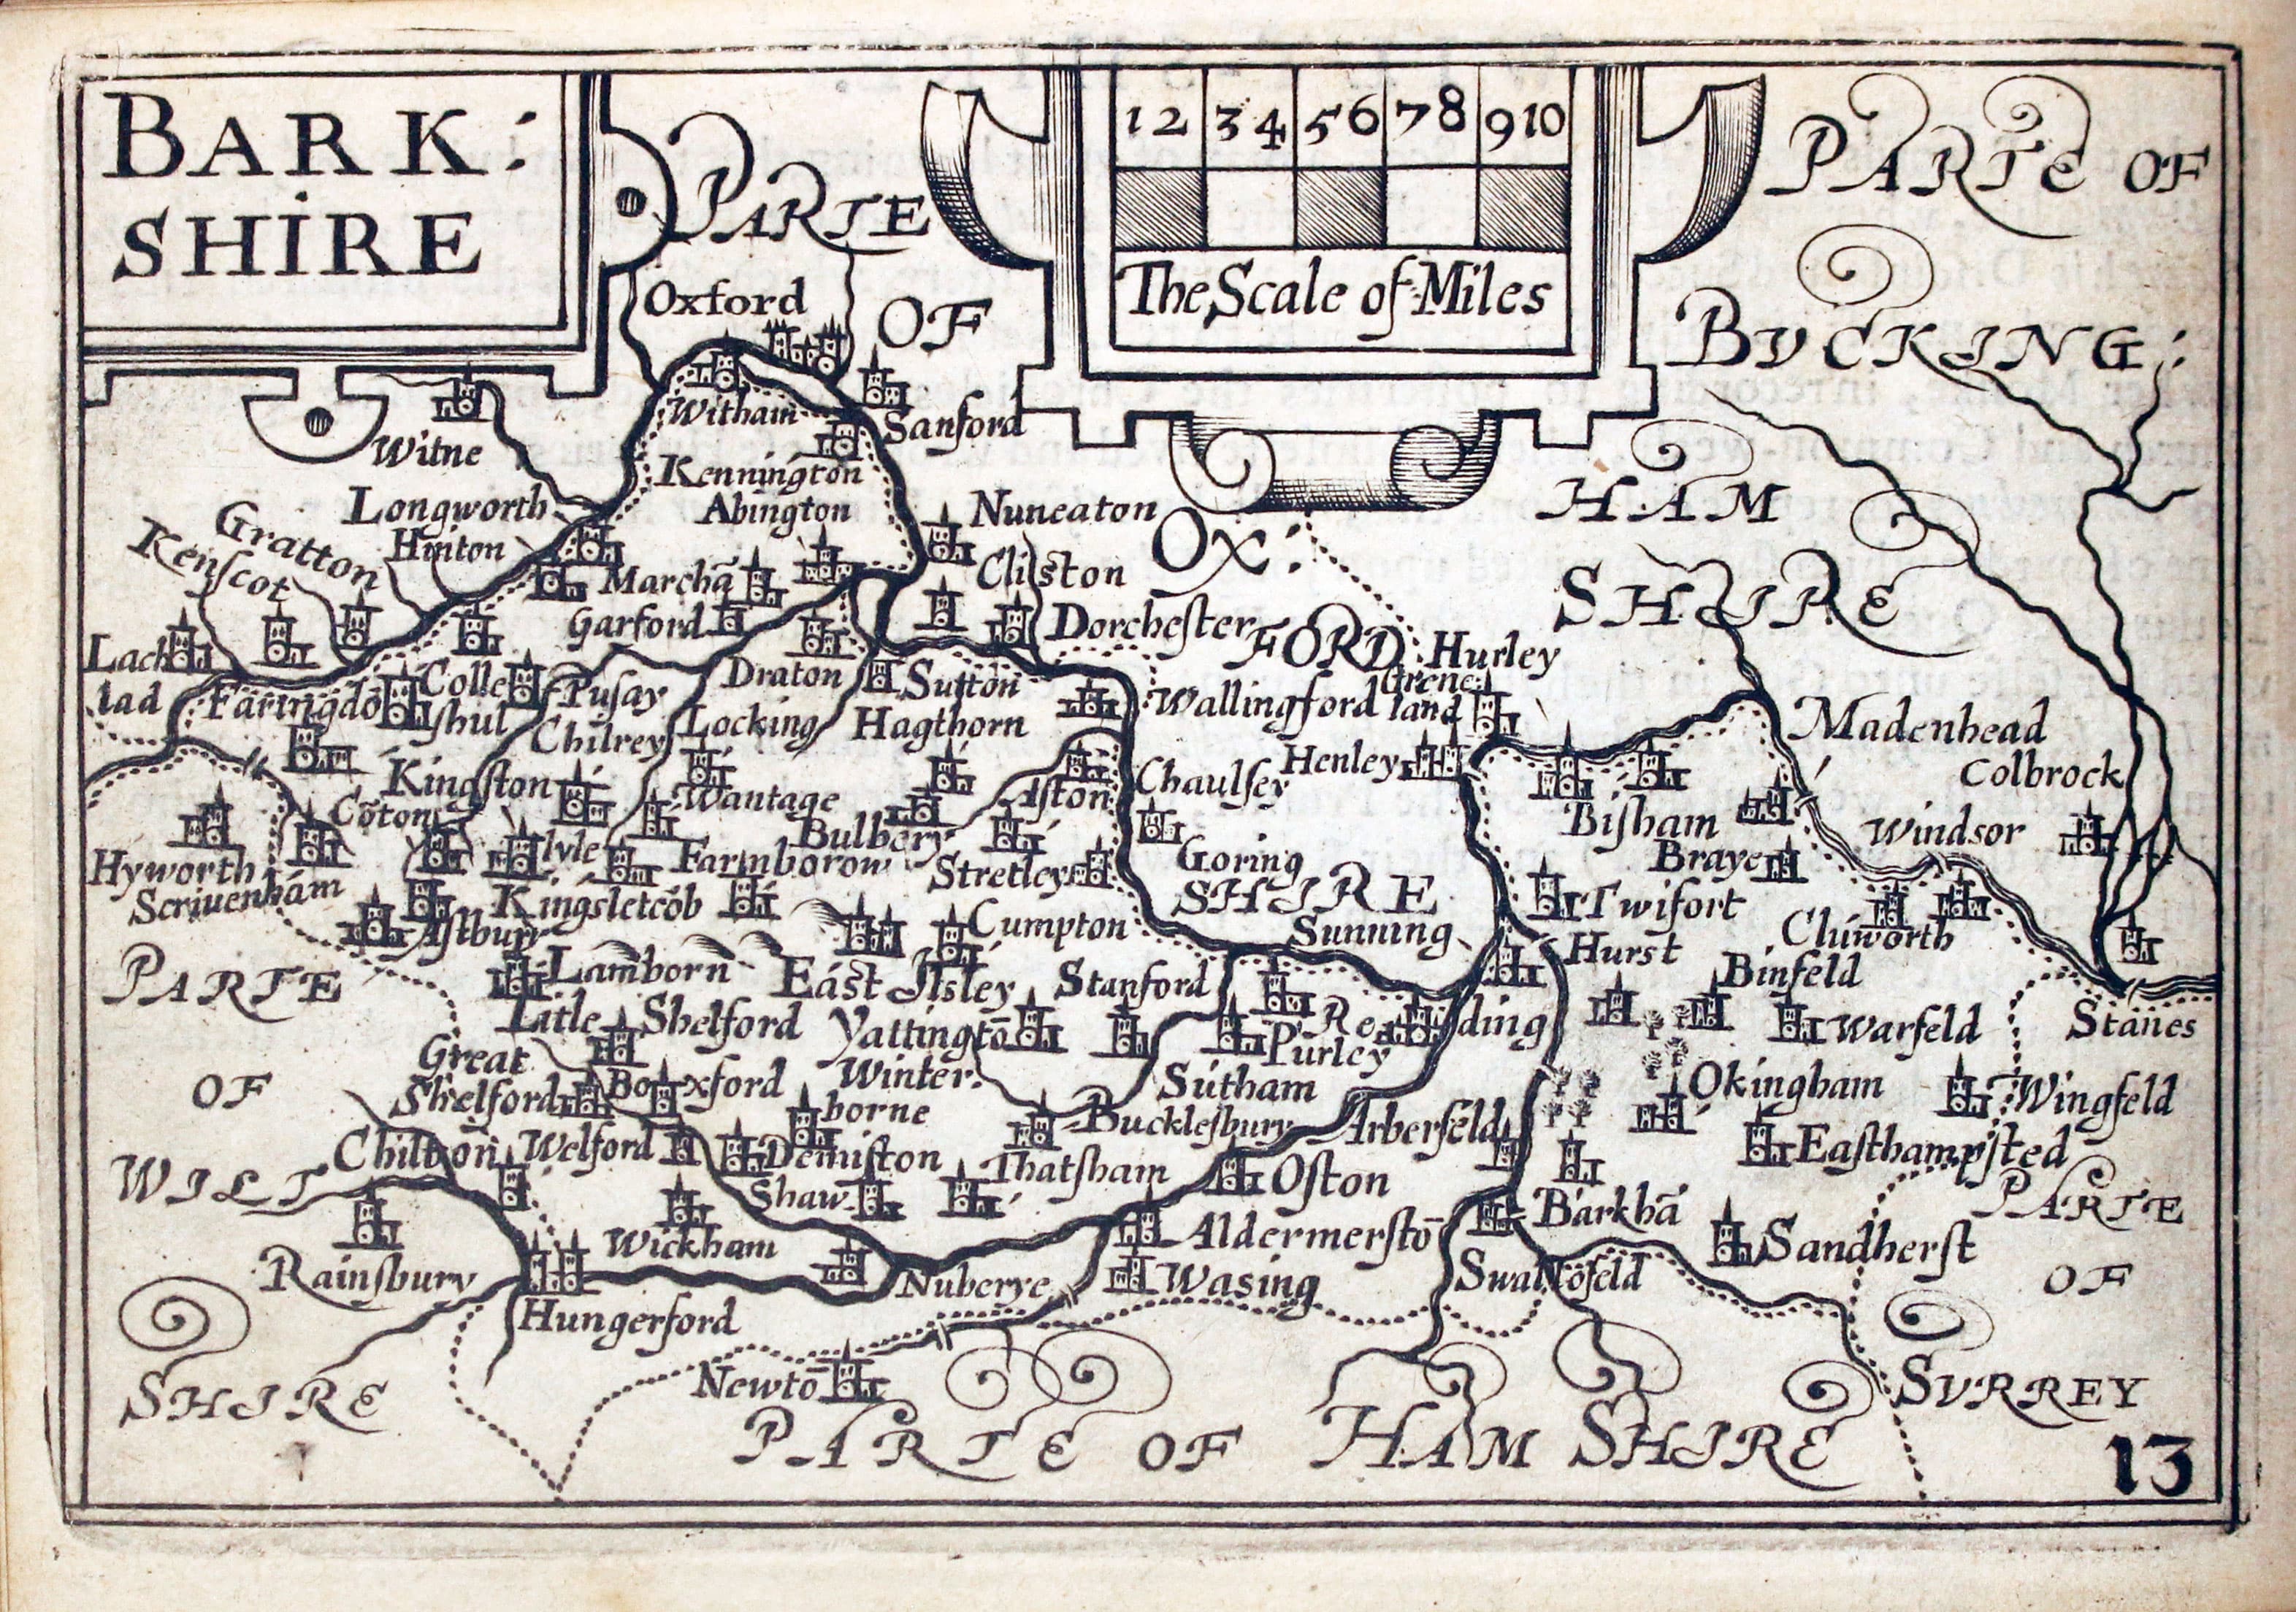 BARK:
SHIRE
1 2 3 4 5 6 7 8 9 10
The Scale of Miles
PARTE
OF
OX:
FORD
SHIRE
PARTE OF
BVCKING:
HAM
SHIRE
Oxford
Witham
Sanford
Witne
Kennington
Abington
Longworth
Hinton
Nuneaton
Gratton
Kenſcot
Marchā
Clifton
Garford
Dorcheſter
Lach
lad
Faringdō
Colle
ſhul
Puſay
Draton
Sutton
Hurley
Grene
land
Wallingford
Chilrey
Locking
Hagthorn
Madenhead
Kingſton
Henley
Colbrock
Cōton
Wantage
Aſton
Chaulſey
Biſham
Windsor
Hyworth
Ivle
Bulbery
Farmborow
Stretley
Goring
Braye
Scriuenham
Kingsletcōb
Twifort
Aſtbury
Cumpton
Sunning
Hurst
Cluworth
Lamborn
East Ilsley
Stanford
Binfeld
Litle
Shelford
Yattingtō
Reding
Purley
Warfeld
Stanes
Great
Shelford
Boxford
Winter
borne
Sutham
Okingham
Wingfeld
Chilton
Welford
Demiſton
Buckleſbury
Arberfeld
Eaſthampſted
Shaw
Thatſham
Oſton
Barkhā
Rainſbury
Wickham
Aldermerſtō
Sandherſt
Hungerford
Nuberye
Waſing
Swallōfeld
Newtō
PARTE
OF
WILT
SHIRE
PARTE OF HAM SHIRE
PARTE
OF
SVRREY
13